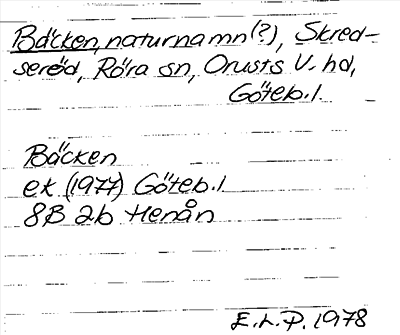 Bäcken, naturnamn(?), Skred-
seröd, Röra sn, Orusts V. hd,
Göteb. l.
Bäcken
ek (1977) Göteb. l
8B 2b Henån
E.L.P. 1978